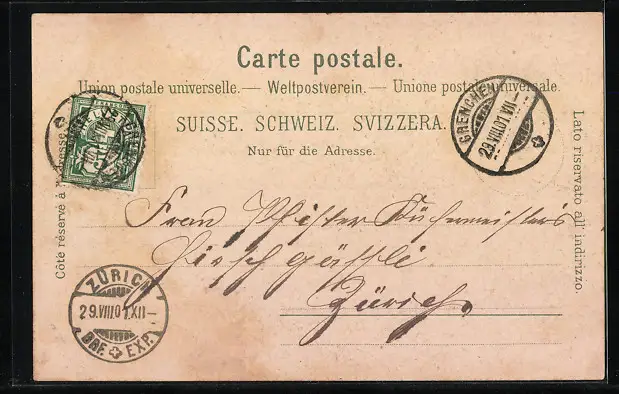 Carte postale.
Union postale universelle. — Weltpostverein. — Unione postale universale.
SUISSE. SCHWEIZ. SVIZZERA.
Nur für die Adresse.
Côté réservé à l'adresse.
Lato riservato all' indirizzo.
GRENCHEN
29.VIII.01.VII
Frau Pfister Küchenmeister's
Hirschgässli
Zürich.
ZÜRICH
29.VIII.01.XII—
BRF. EXP.